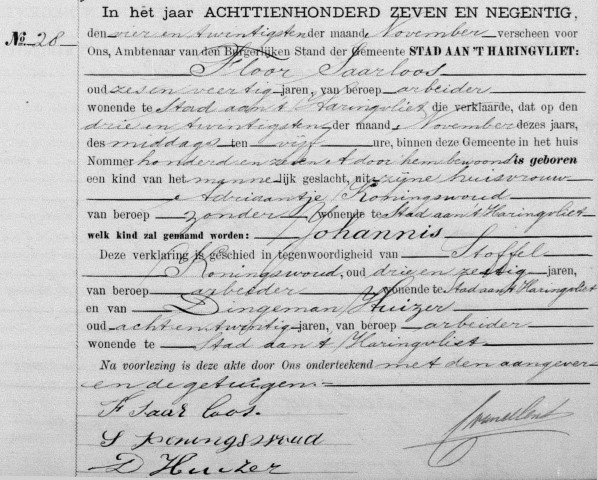 In het jaar ACHTTIENHONDERD ZEVEN EN NEGENTIG,
No. 28
den vier en twintigsten der maand November verscheen voor
Ons, Ambtenaar van den Burgerlijken Stand der Gemeente STAD AAN 'T HARINGVLIET:
Floor Saarloos
oud zes en veertig jaren, van beroep arbeider
wonende te Stad aan 't Haringvliet die verklaarde, dat op den
drie en twintigsten der maand November dezes jaars,
des middags ten vijf ure, binnen deze Gemeente in het huis
Nommer honderd en zeven A door hem bewoond is geboren
een kind van het mannelijk geslacht, uit zijne huisvrouw
Adriaantje Koningswoud
van beroep zonder wonende te Stad aan 't Haringvliet
welk kind zal genaamd worden: Johannis
Deze verklaring is geschied in tegenwoordigheid van Stoffel
Koningswoud, oud drie en zestig jaren,
van beroep arbeider wonende te Stad aan 't Haringvliet
en van Dingeman Huizer
oud acht en twintig jaren, van beroep arbeider
wonende te Stad aan 't Haringvliet
Na voorlezing is deze akte door Ons onderteekend met den aangever
en de getuigen.
F Saarloos.
S Koningswoud
D Huizer